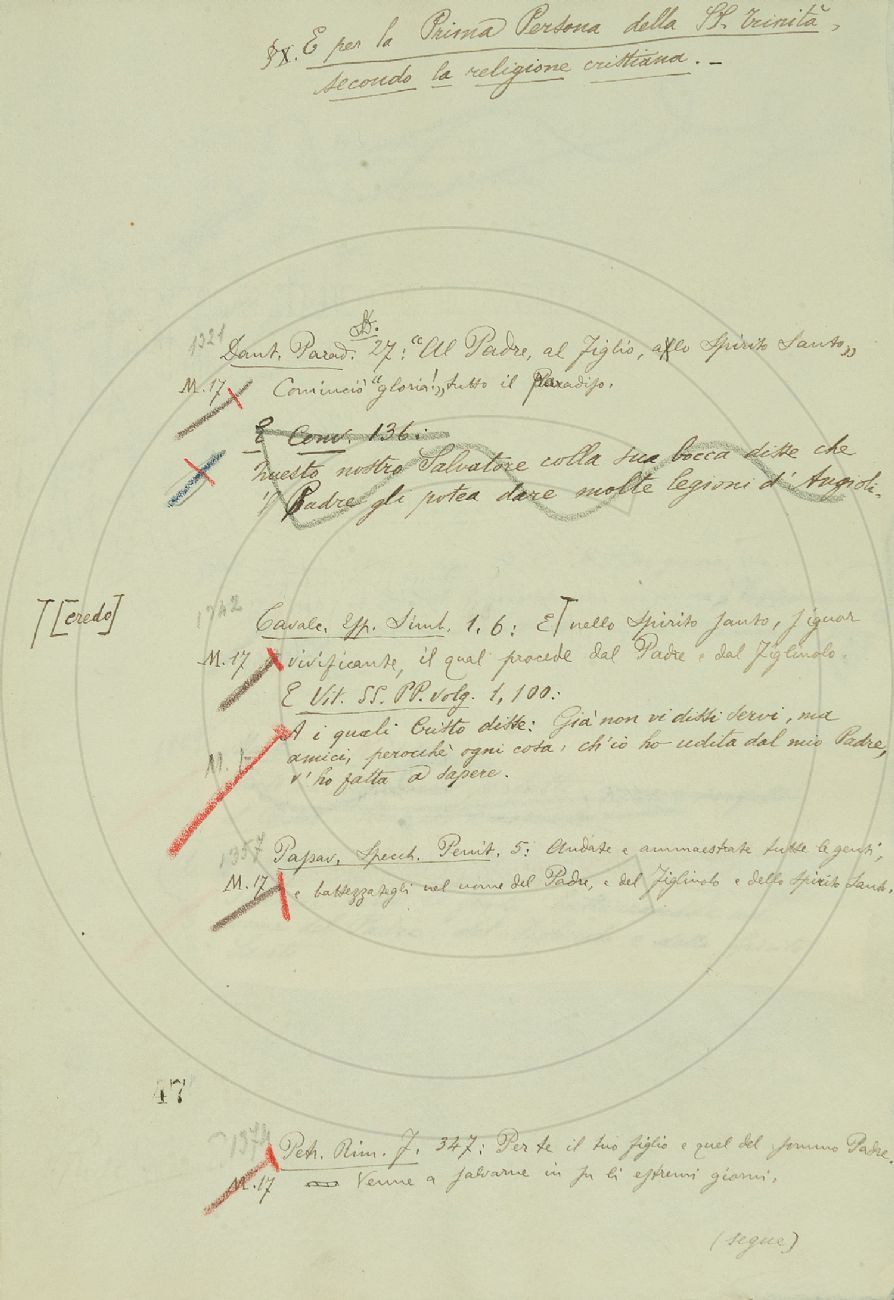 §X. E per la Prima Persona della SS. Trinità,
secondo la religione cristiana. -
1321
Dant. Parad. 27: "Al Padre, al Figlio, allo Spirito Santo"
M. 17 Cominciò "gloria!" tutto il Paradiso.
E Conv. 136:
Questo nostro Salvatore colla sua bocca disse che
il Padre gli potea dare molte legioni d'Angioli.
T [credo]
1342
Cavalc. Esp. Simb. 1, 6: E T nello Spirito santo, signor
M. 17 vivificante, il qual procede dal Padre e dal Figliuolo.
E Vit. SS. PP. volg. 1, 100:
A i quali Cristo disse: Già non vi dissi servi, ma
M. 1 amici, perocchè ogni cosa, ch'io ho udita dal mio Padre,
v'ho fatta a sapere.
1357
Passav. Specch. Penit. 5: Andate e ammaestrate tutte le genti,
M. 17 e battezzategli nel nome del Padre, e del Figliuolo e dello Spirito Santo.
47
1374
Petr. Rim. 347: Per te il tuo figlio e quel del sommo Padre.
M. 17 Venne a salvarne in su li estremi giorni.
(segue)